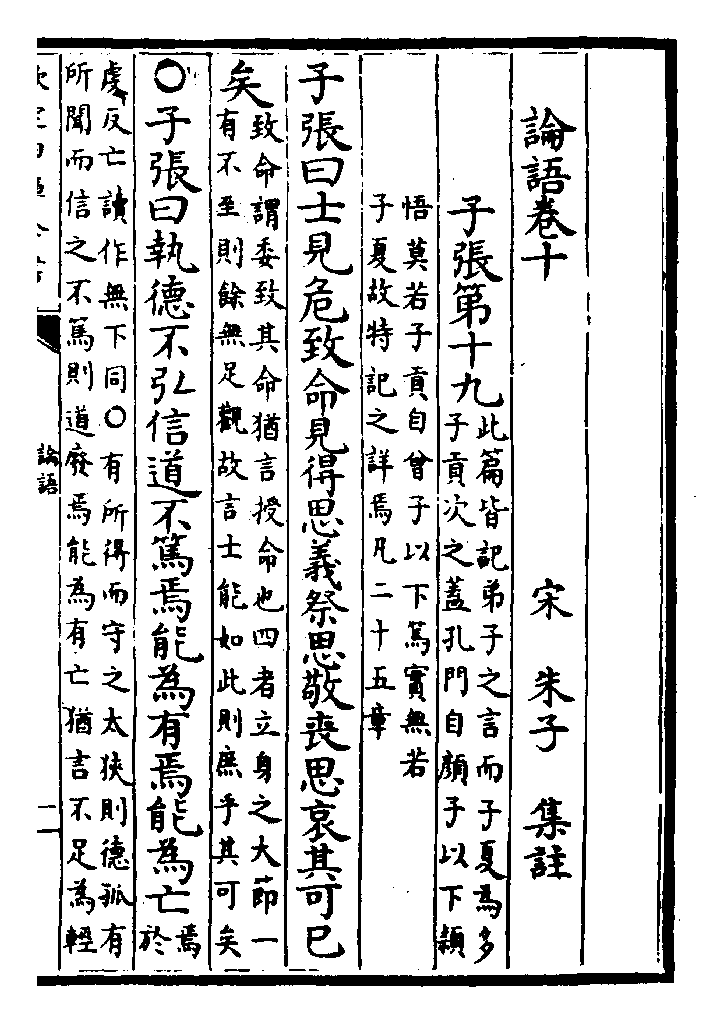 論語卷十
宋 朱子 集註
子張第十九
此篇皆記弟子之言而子夏為多
子貢次之蓋孔門自顏子以下穎
悟莫若子貢自曾子以下篤實無若
子夏故特記之詳焉凡二十五章
子張曰士見危致命見得思義祭思敬喪思哀其可已
矣
致命謂委致其命猶言授命也四者立身之大節一
有不至則餘無足觀故言士能如此則庶乎其可矣
○子張曰執德不弘信道不篤焉能為有焉能為亡
焉
於
虔反亡讀作無下同○有所得而守之太狹則德孤有
所聞而信之不篤則道廢焉能為有亡猶言不足為輕
論語
二